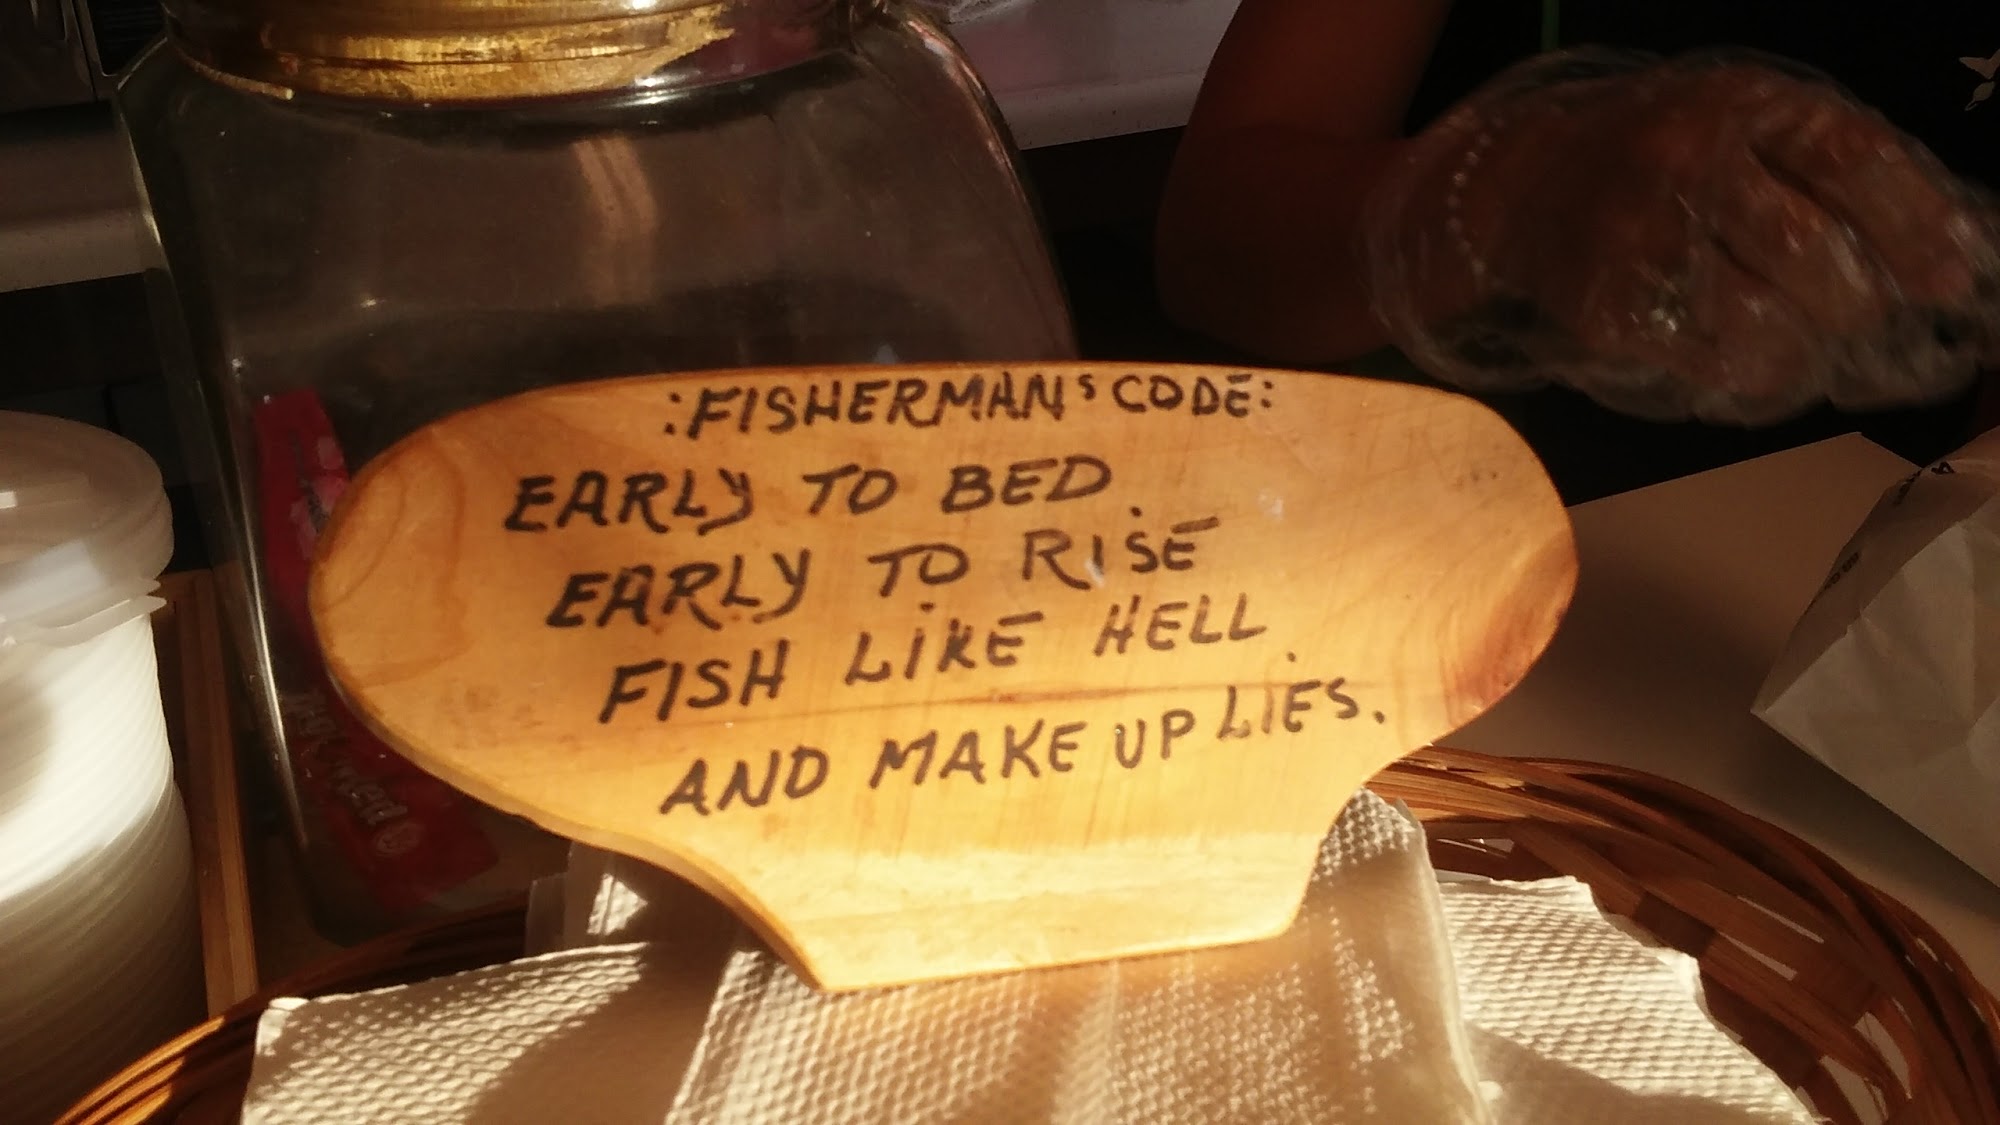 :FISHERMANS CODE:
EARLY TO BED.
EARLY TO RISE
FISH LIKE HELL.
AND MAKE UP LIES.